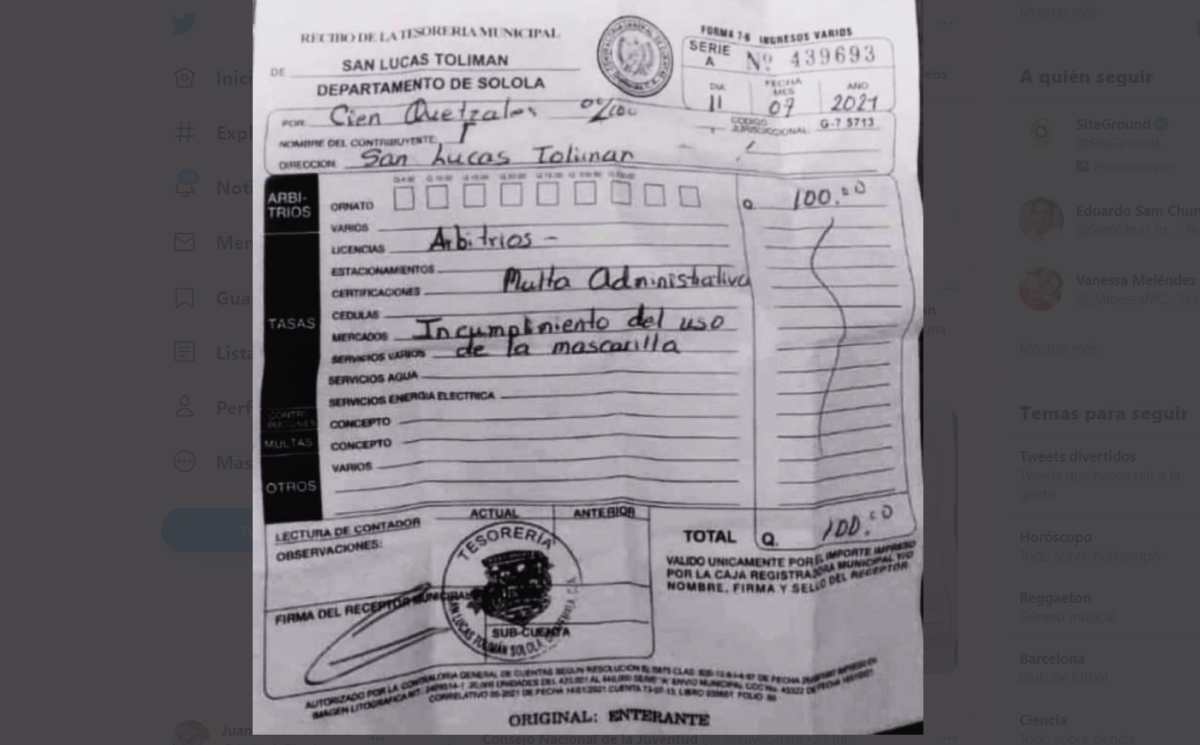 RECIBO DE LA TESORERIA MUNICIPAL
DE SAN LUCAS TOLIMAN
DEPARTAMENTO DE SOLOLA
FORMA 7-B INGRESOS VARIOS
SERIE A Nº 439693
DIA FECHA MES AÑO
11 07 2021
CODIGO JURISDICCIONAL: G-7 5713
POR: Cien Quetzales 00/100
NOMBRE DEL CONTRIBUYENTE:
DIRECCION: San Lucas Toliman
ARBITRIOS
ORNATO
Q. 100.00
VARIOS
LICENCIAS Arbitrios -
ESTACIONAMIENTOS
CERTIFICACIONES Multa Administrativa
TASAS
CEDULAS
MERCADOS Incumplimiento del uso
SERVICIOS VARIOS de la mascarilla
SERVICIOS AGUA
SERVICIOS ENERGIA ELECTRICA
CONCEPTO
MULTAS CONCEPTO
VARIOS
OTROS
LECTURA DE CONTADOR
ACTUAL
ANTERIOR
OBSERVACIONES:
TOTAL Q. 100.00
VALIDO UNICAMENTE POR EL IMPORTE IMPRESO
POR LA CAJA REGISTRADORA MUNICIPAL Y/O
NOMBRE, FIRMA Y SELLO DEL RECEPTOR
FIRMA DEL RECEPTOR MUNICIPAL
SUB-CUENTA
TESORERÍA
SAN LUCAS TOLIMÁN SOLOLA
AUTORIZADO POR LA CONTRALORIA GENERAL DE CUENTAS SEGUN RESOLUCION
ORIGINAL: ENTERANTE
A quién seguir
SiteGround
Eduardo Sam Chun
Vanessa Meléndez
Temas para seguir
Tweets divertidos
Horóscopo
Reggaeton
Barcelona
Ciencia
Consejo Nacional de la Juventud
Juan